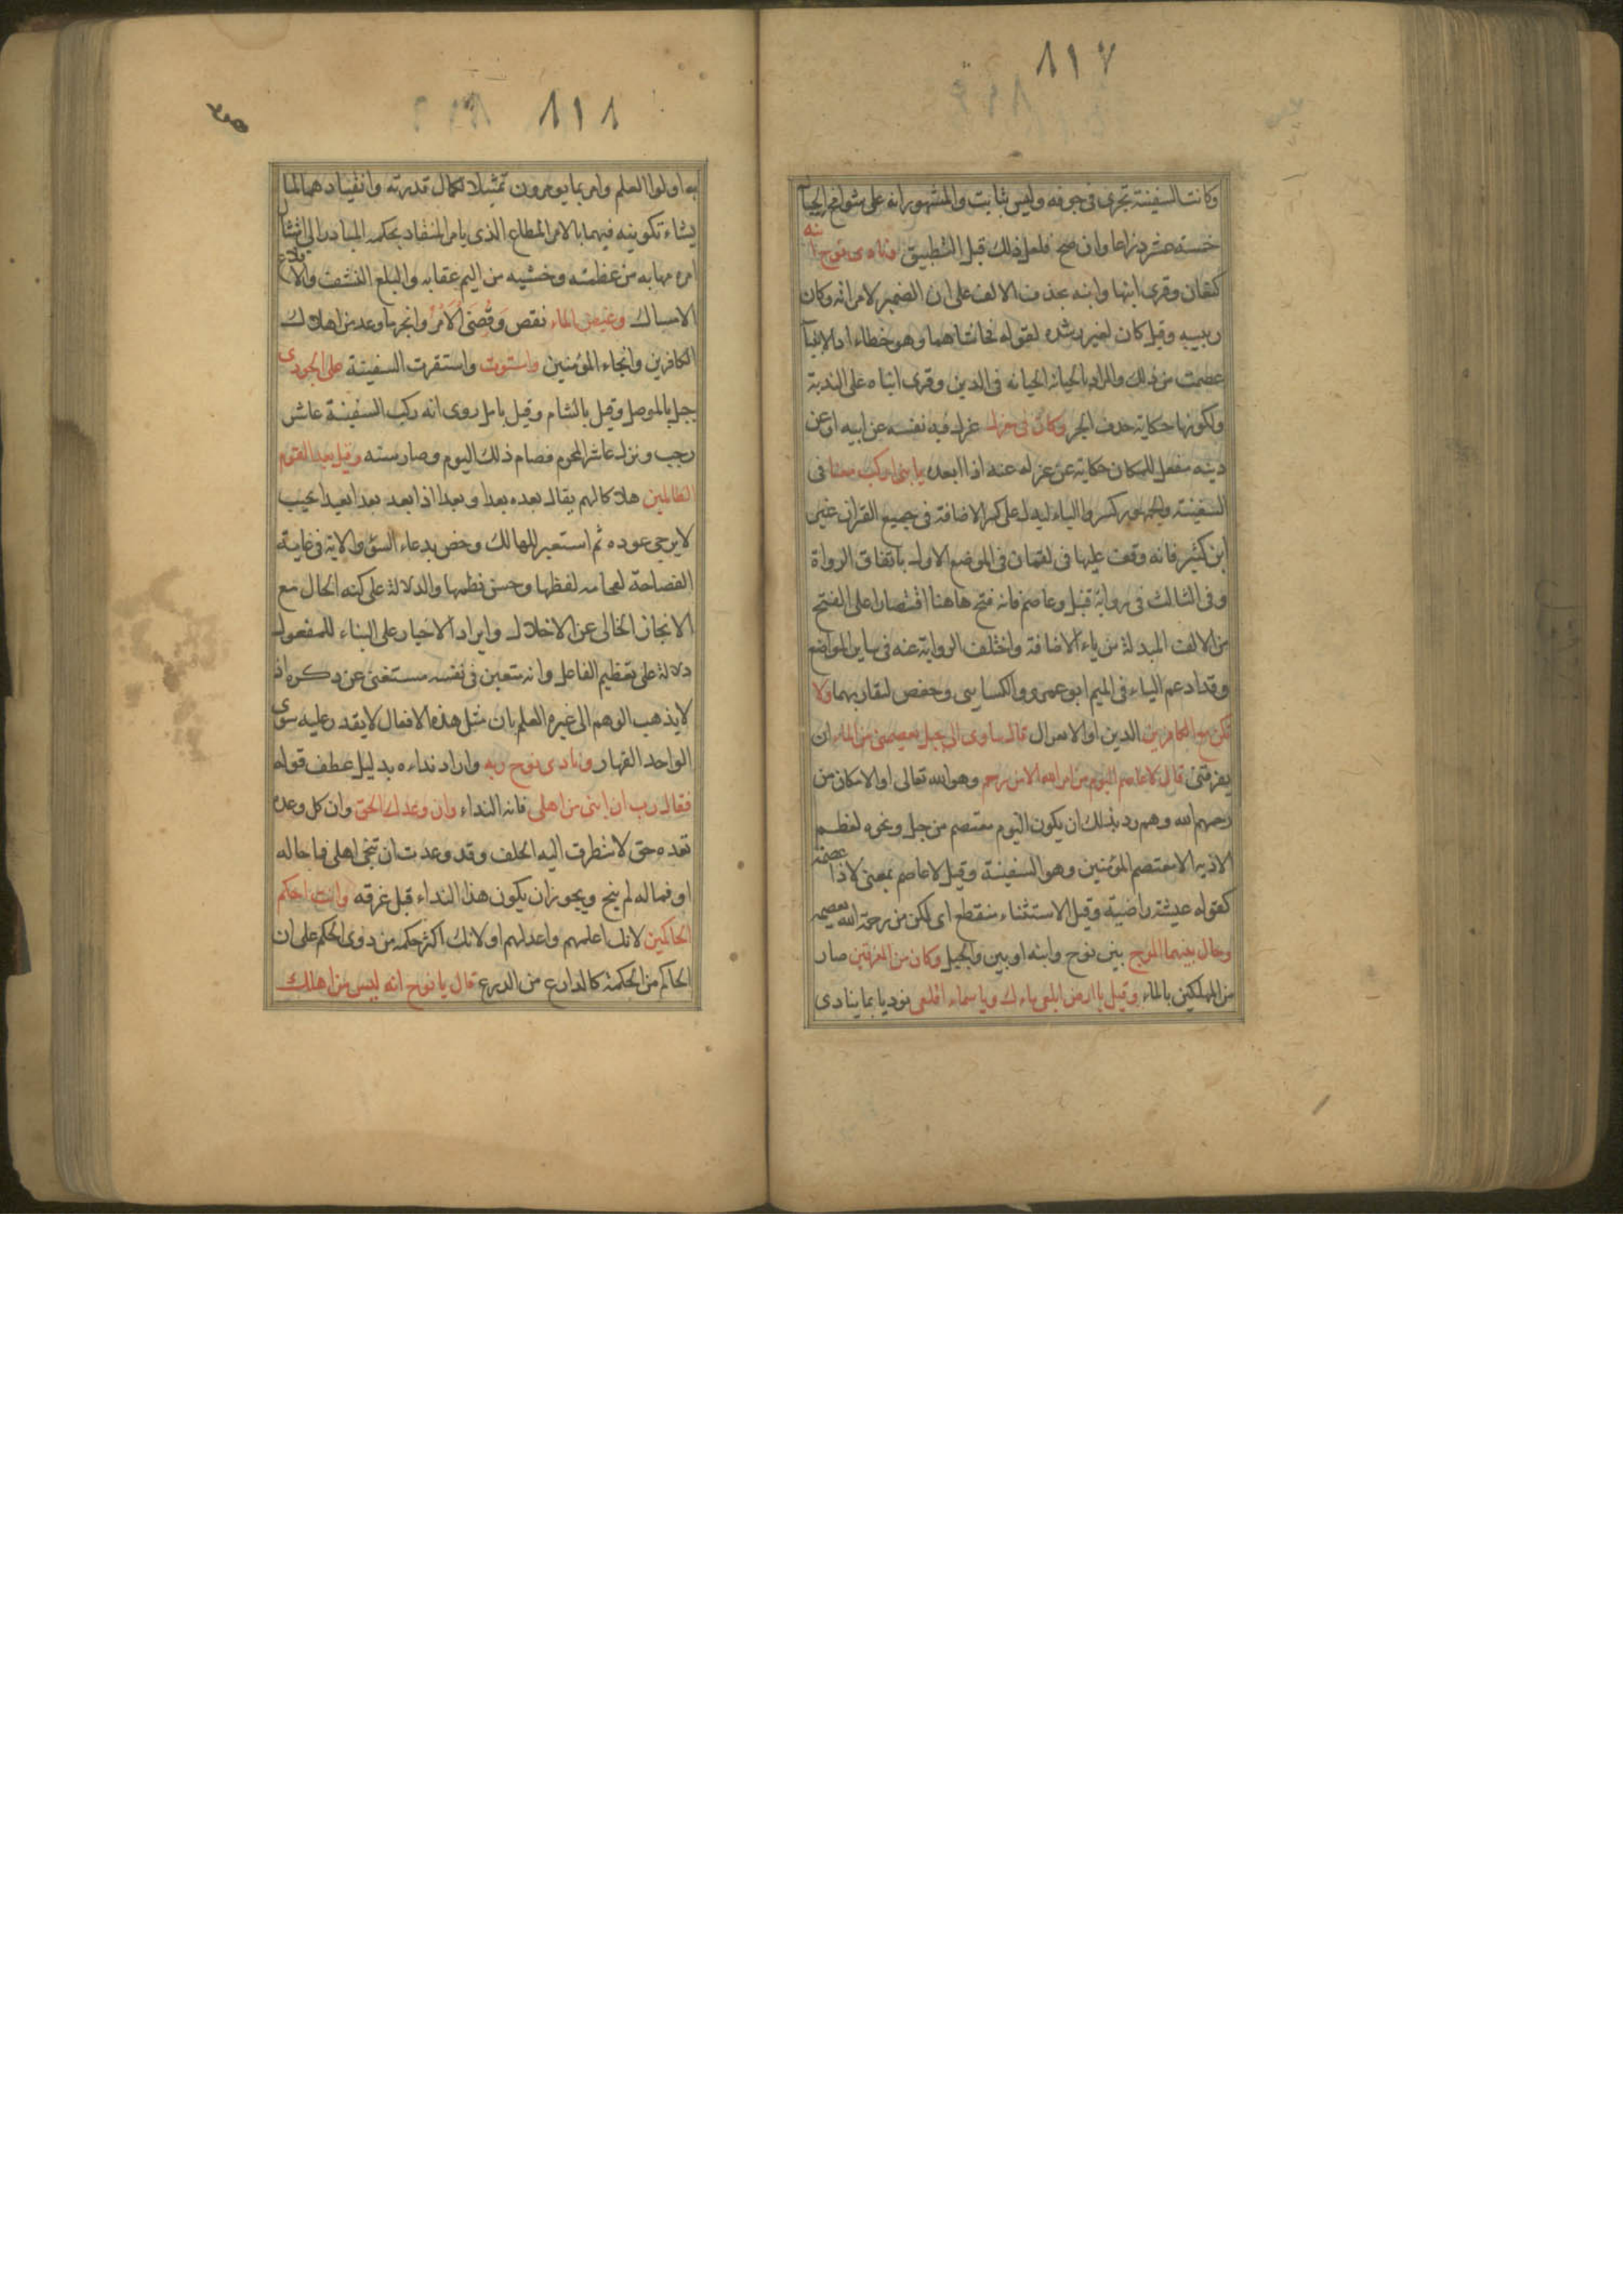 ٨١٧
وكانت السفينة تجرى فى جوفه وليس بثابت والمشهور انه على شوامخ الجبال
خمسة عشر ذراعا وان صح فلعل ذلك قبل التطبيق ونادى نوح ابنه
كنعان وقرى ابنها وابنه بحذف الالف على ان الضمير لامراته وكان
ربيبه وقيل كان لغير رشده لقوله فخانتاهما وهو خطاء اذ الانبيا
عصمت من ذلك والمراد بالخيانة الخيانه فى الدين وقرى ابناه على الندبة
ولكونها حكاية حذف الحر وكان فى معزل عزل فيه نفسه عن ابيه او عن
دينه مفعل للمكان حكاية عن عزله عنه اذا ابعده يا بنى اركب معنا فى
السفينة والجمهور كسروا الياء ليدل على كسر الاضافة فى جميع القران غير
ابن كثير فانه وقف عليها فى لقمان فى الموضع الاول باتفاق الرواة
وفى الثالث فى رواية قنبل وعاصم فانه فتح هاهنا اقتصارا على الفتح
من الالف المبدلة من ياء الاضافة واختلف الرواية عنه فى ساير المواضع
وقد ادغم الياء فى الميم ابو عمرو والكسايى وحفص لتقاربهما ولا
تكن مع الكافرين الدين او الانعزال قال ساوى الى جبل يعصمنى من الماء ان
يغرقنى قال لا عاصم اليوم من امر الله الا من رحم وهو الله تعالى او الامكان من
رحمهم الله وهم رد بذلك ان يكون اليوم معتصم من جبل ونحوه لعظم
الاذير الا معتصم المؤمنين وهو السفينة وقيل لا عاصم بمعنى لا ذا عصمة
كقوله عيشة راضية وقيل الاستثناء منقطع اى لكن من رحمة الله يعصمه
وحال بينهما الموج بين نوح وابنه او بين والجبل وكان من المغرقين صار
من المهلكين بالماء وقيل يا ارض ابلعى ماءك ويا سماء اقلعى نوديا بما ينادى
٨١٨
به اولوا العلم وامر بما يومرون تمثيلا لكمال قدرته وانقيادهما لما
يشاء تكوينه فيهما بالامر المطاع الذى يامر المنقاد بحكمه المبادر الى امتثال
امره مهابه من عظمته وخشيه من اليم عقابه والبلع النشف والاقلاع
الامساك وغيض الماء نقص وَقُضِىَ الْاَمْرُ وانجز ما وعد من اهلاك
الكافرين وانجاء المؤمنين واستوت واستقرت السفينة على الجودى
جبل بالموصل وقيل بالشام وقيل بامل روى انه ركب السفينة عاشر
رجب ونزل عاشر المحرم فصام ذلك اليوم وصار سنه وقيل بعدا للقوم
الظالمين هلاكا لهم يقال بعده بعدا وبعدا اذا بعد بعدا بعيدا بحيث
لا يرجى عوده ثم استعير للهالك وخص بدعاء السؤ والاية فى غاية
الفصاحة لفخامه لفظها وحسن نظمها والدلالة على كنه الحال مع
الانجاز الخالى عن الاخلال وايراد الاخبار على البناء للمفعول
دلالة على تعظيم الفاعل وانه متعين فى نفسه مستغنى عن ذكره اذ
لا يذهب الوهم الى غيره العلم بان مثل هذه الافعال لا يقدر عليه سوى
الواحد القهار ونادى نوح ربه واراد نداءه بدليل عطف قوله
فقال رب ان ابنى من اهلى فانه النداء وان وعدك الحق وان كل وعده
تعده حق لا يتطرق اليه الخلف وقد وعدت ان تنجى اهلى فما حاله
او فماله لم ينج ويجوز ان يكون هذا النداء قبل غرقه وانت احكم
الحاكمين لانك اعلمهم واعدلهم او لانك اكثر حكمه من ذوى الحكم على ان
الحاكم من الحكمة كالدارع من الدرع قال يا نوح انه ليس من اهلك